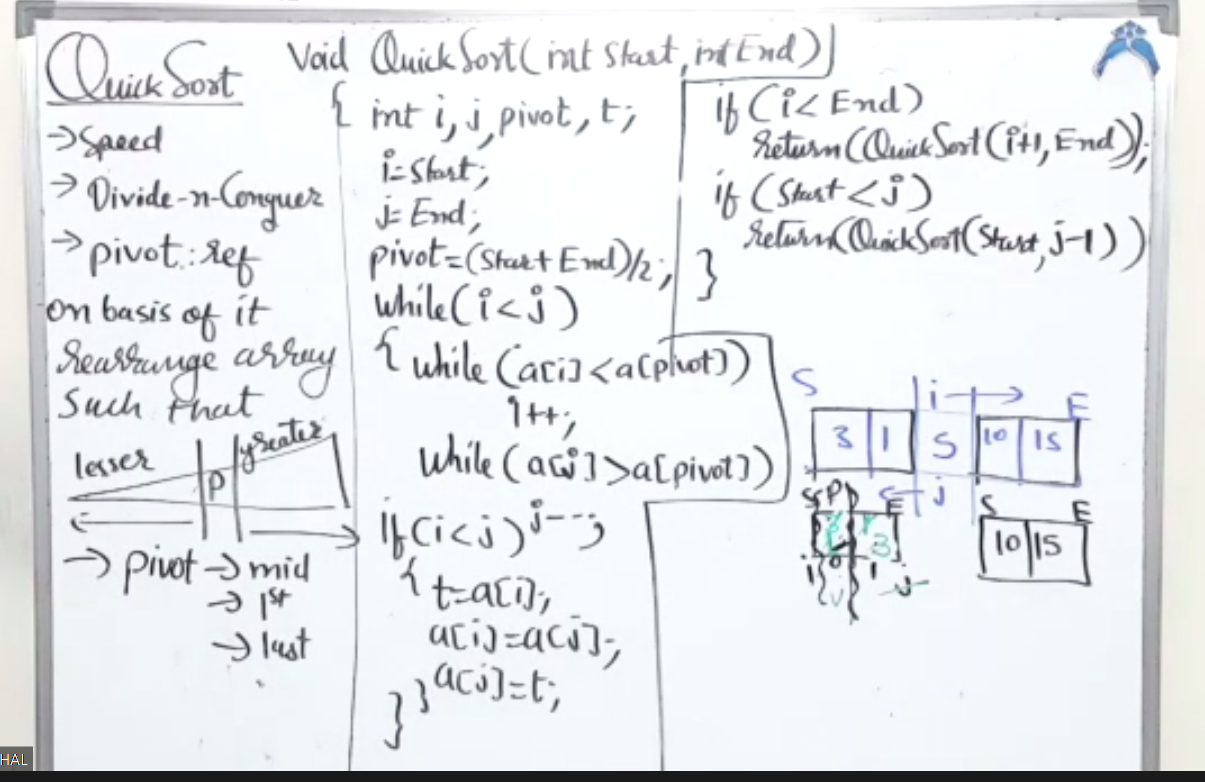 Quick Sort
→ Speed
→ Divide-n-Conquer
→ pivot: ref
on basis of it
Rearrange array
Such that
lesser P greater
→ pivot → mid
→ 1st
→ last
Void QuickSort(int Start, int End)
{ int i, j, pivot, t;
i=Start;
j=End;
pivot=(Start+End)/2;
while(i<j)
{ while(a[i]<a[pivot])
i++;
while(a[j]>a[pivot])
j--;
if(i<j)
{ t=a[i];
a[i]=a[j];
a[j]=t;
}
}
if(i<End)
Return(QuickSort(i+1,End));
if(Start<j)
Return(QuickSort(Start,j-1))
}
S i → E
3 1 5 10 15
← j
S P E S E
3 10 15
i 0 1 j
HAL